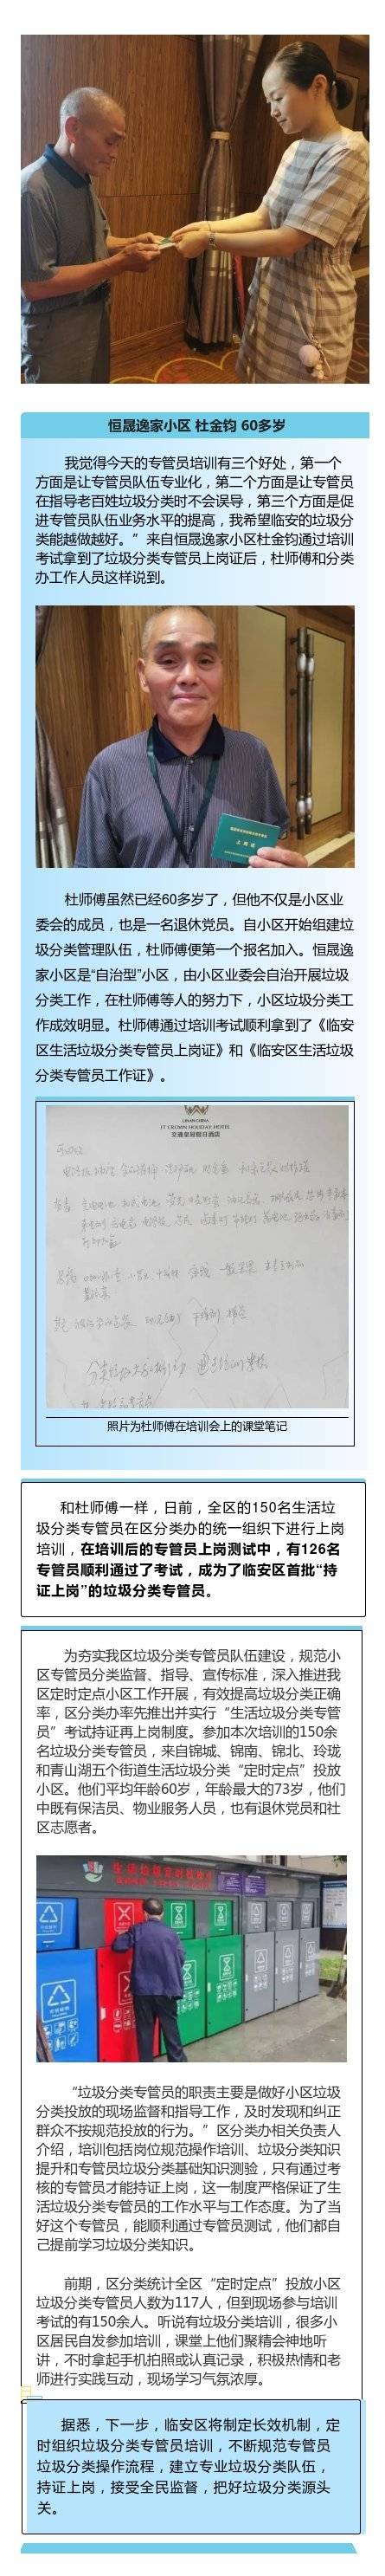 恒晟逸家小区 杜金钧 60多岁
我觉得今天的专管员培训有三个好处，第一个
方面是让专管员队伍专业化，第二个方面是让专管员
在指导老百姓垃圾分类时不会误导，第三个方面是促
进专管员队伍业务水平的提高，我希望临安的垃圾分
类能越做越好。”来自恒晟逸家小区杜金钧通过培训
考试拿到了垃圾分类专管员上岗证后，杜师傅和分类
办工作人员这样说到。
上岗证
杜师傅虽然已经60多岁了，但他不仅是小区业
委会的成员，也是一名退休党员。自小区开始组建垃
圾分类管理队伍，杜师傅便第一个报名加入。恒晟逸
家小区是“自治型”小区，由小区业委会自治开展垃圾
分类工作，在杜师傅等人的努力下，小区垃圾分类工
作成效明显。杜师傅通过培训考试顺利拿到了《临安
区生活垃圾分类专管员上岗证》和《临安区生活垃圾
分类专管员工作证》。
LINAN CHINA
JT CROWN HOLIDAY HOTEL
交通皇冠假日酒店
照片为杜师傅在培训会上的课堂笔记
和杜师傅一样，日前，全区的150名生活垃
圾分类专管员在区分类办的统一组织下进行上岗
培训，在培训后的专管员上岗测试中，有126名
专管员顺利通过了考试，成为了临安区首批“持
证上岗”的垃圾分类专管员。
为夯实我区垃圾分类专管员队伍建设，规范小
区专管员分类监督、指导、宣传标准，深入推进我
区定时定点小区工作开展，有效提高垃圾分类正确
率，区分类办率先推出并实行“生活垃圾分类专管
员”考试持证再上岗制度。参加本次培训的150余
名垃圾分类专管员，来自锦城、锦南、锦北、玲珑
和青山湖五个街道生活垃圾分类“定时定点”投放
小区。他们平均年龄60岁，年龄最大的73岁，他们
中既有保洁员、物业服务人员，也有退休党员和社
区志愿者。
“垃圾分类专管员的职责主要是做好小区垃圾
分类投放的现场监督和指导工作，及时发现和纠正
群众不按规范投放的行为。”区分类办相关负责人
介绍，培训包括岗位规范操作培训、垃圾分类知识
提升和专管员垃圾分类基础知识测验，只有通过考
核的专管员才能持证上岗，这一制度严格保证了生
活垃圾分类专管员的工作水平与工作态度。为了当
好这个专管员，能顺利通过专管员测试，他们都自
己提前学习垃圾分类知识。
前期，区分类统计全区“定时定点”投放小区
垃圾分类专管员人数为117人，但到现场参与培训
考试的有150余人。听说有垃圾分类培训，很多小
区居民自发参加培训，课堂上他们聚精会神地听
讲，不时拿起手机拍照或认真记录，积极热情和老
师进行实践互动，现场学习气氛浓厚。
据悉，下一步，临安区将制定长效机制，定
时组织垃圾分类专管员培训，不断规范专管员
垃圾分类操作流程，建立专业垃圾分类队伍，
持证上岗，接受全民监督，把好垃圾分类源头
关。